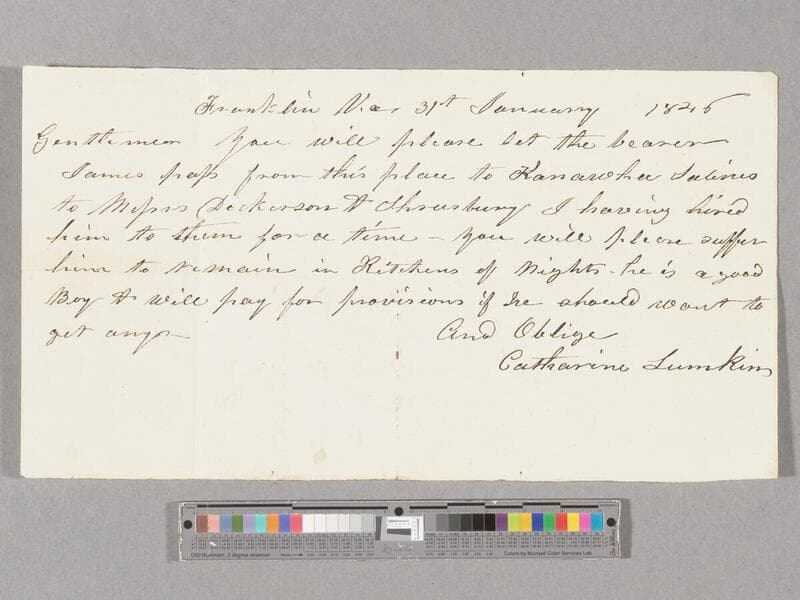 Franklin Va. 31st January 1846
Gentlemen You will please let the bearer
James pass from this place to Kanawha Salines
to Messrs Dickerson & Shrewsbury I having hired
him to them for a time - you will please suffer
him to remain in Kitchens of Nights - he is a good
Boy & will pay for provisions if he should want to
get any
And Oblige
Catharine Lumkin
DSO Illuminant, 2 degree observer
Colors by Munsell Color Services Lab